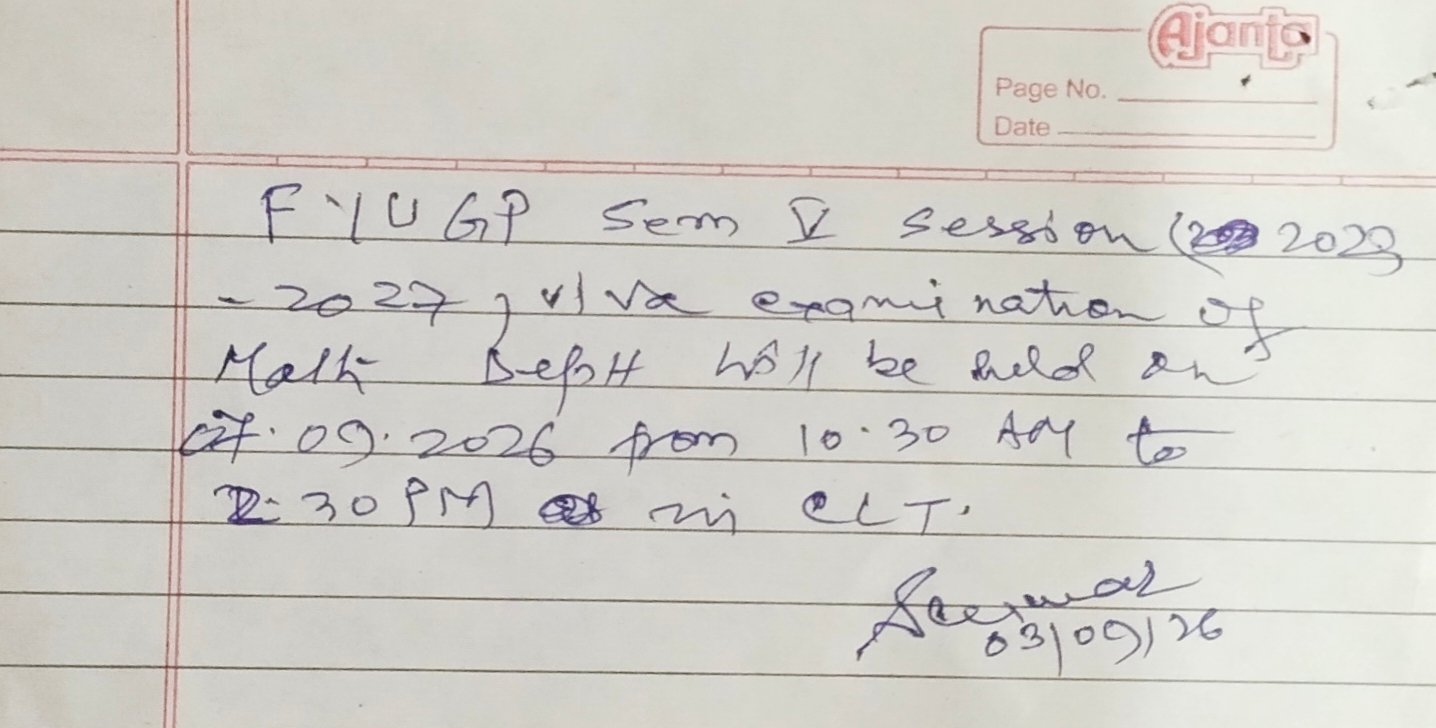 Ajanta
Page No.
Date
FYUGP Sem V session (2023
-2027, viva examination of
Math Deptt will be held on
07.09.2026 from 10.30 AM to
2:30 PM in CLT.
03/09/26